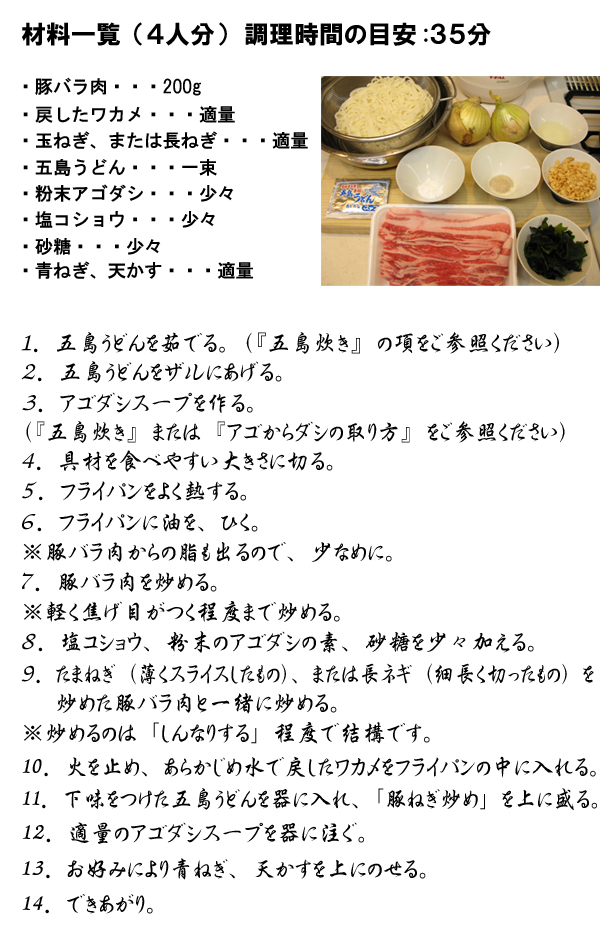 材料一覧（４人分）調理時間の目安:３５分
・豚バラ肉・・・200g
・戻したワカメ・・・適量
・玉ねぎ、または長ねぎ・・・適量
・五島うどん・・・一束
・粉末アゴダシ・・・少々
・塩コショウ・・・少々
・砂糖・・・少々
・青ねぎ、天かす・・・適量
1．五島うどんを茹でる。（『五島炊き』の項をご参照ください）
2．五島うどんをザルにあげる。
3．アゴダシスープを作る。
（『五島炊き』または『アゴからダシの取り方』をご参照ください）
4．具材を食べやすい大きさに切る。
5．フライパンをよく熱する。
6．フライパンに油を、ひく。
※豚バラ肉からの脂も出るので、少なめに。
7．豚バラ肉を炒める。
※軽く焦げ目がつく程度まで炒める。
8．塩コショウ、粉末のアゴダシの素、砂糖を少々加える。
9．たまねぎ（薄くスライスしたもの）、または長ネギ（細長く切ったもの）を
炒めた豚バラ肉と一緒に炒める。
※炒めるのは「しんなりする」程度で結構です。
10．火を止め、あらかじめ水で戻したワカメをフライパンの中に入れる。
11．下味をつけた五島うどんを器に入れ、「豚ねぎ炒め」を上に盛る。
12．適量のアゴダシスープを器に注ぐ。
13．お好みにより青ねぎ、天かすを上にのせる。
14．できあがり。